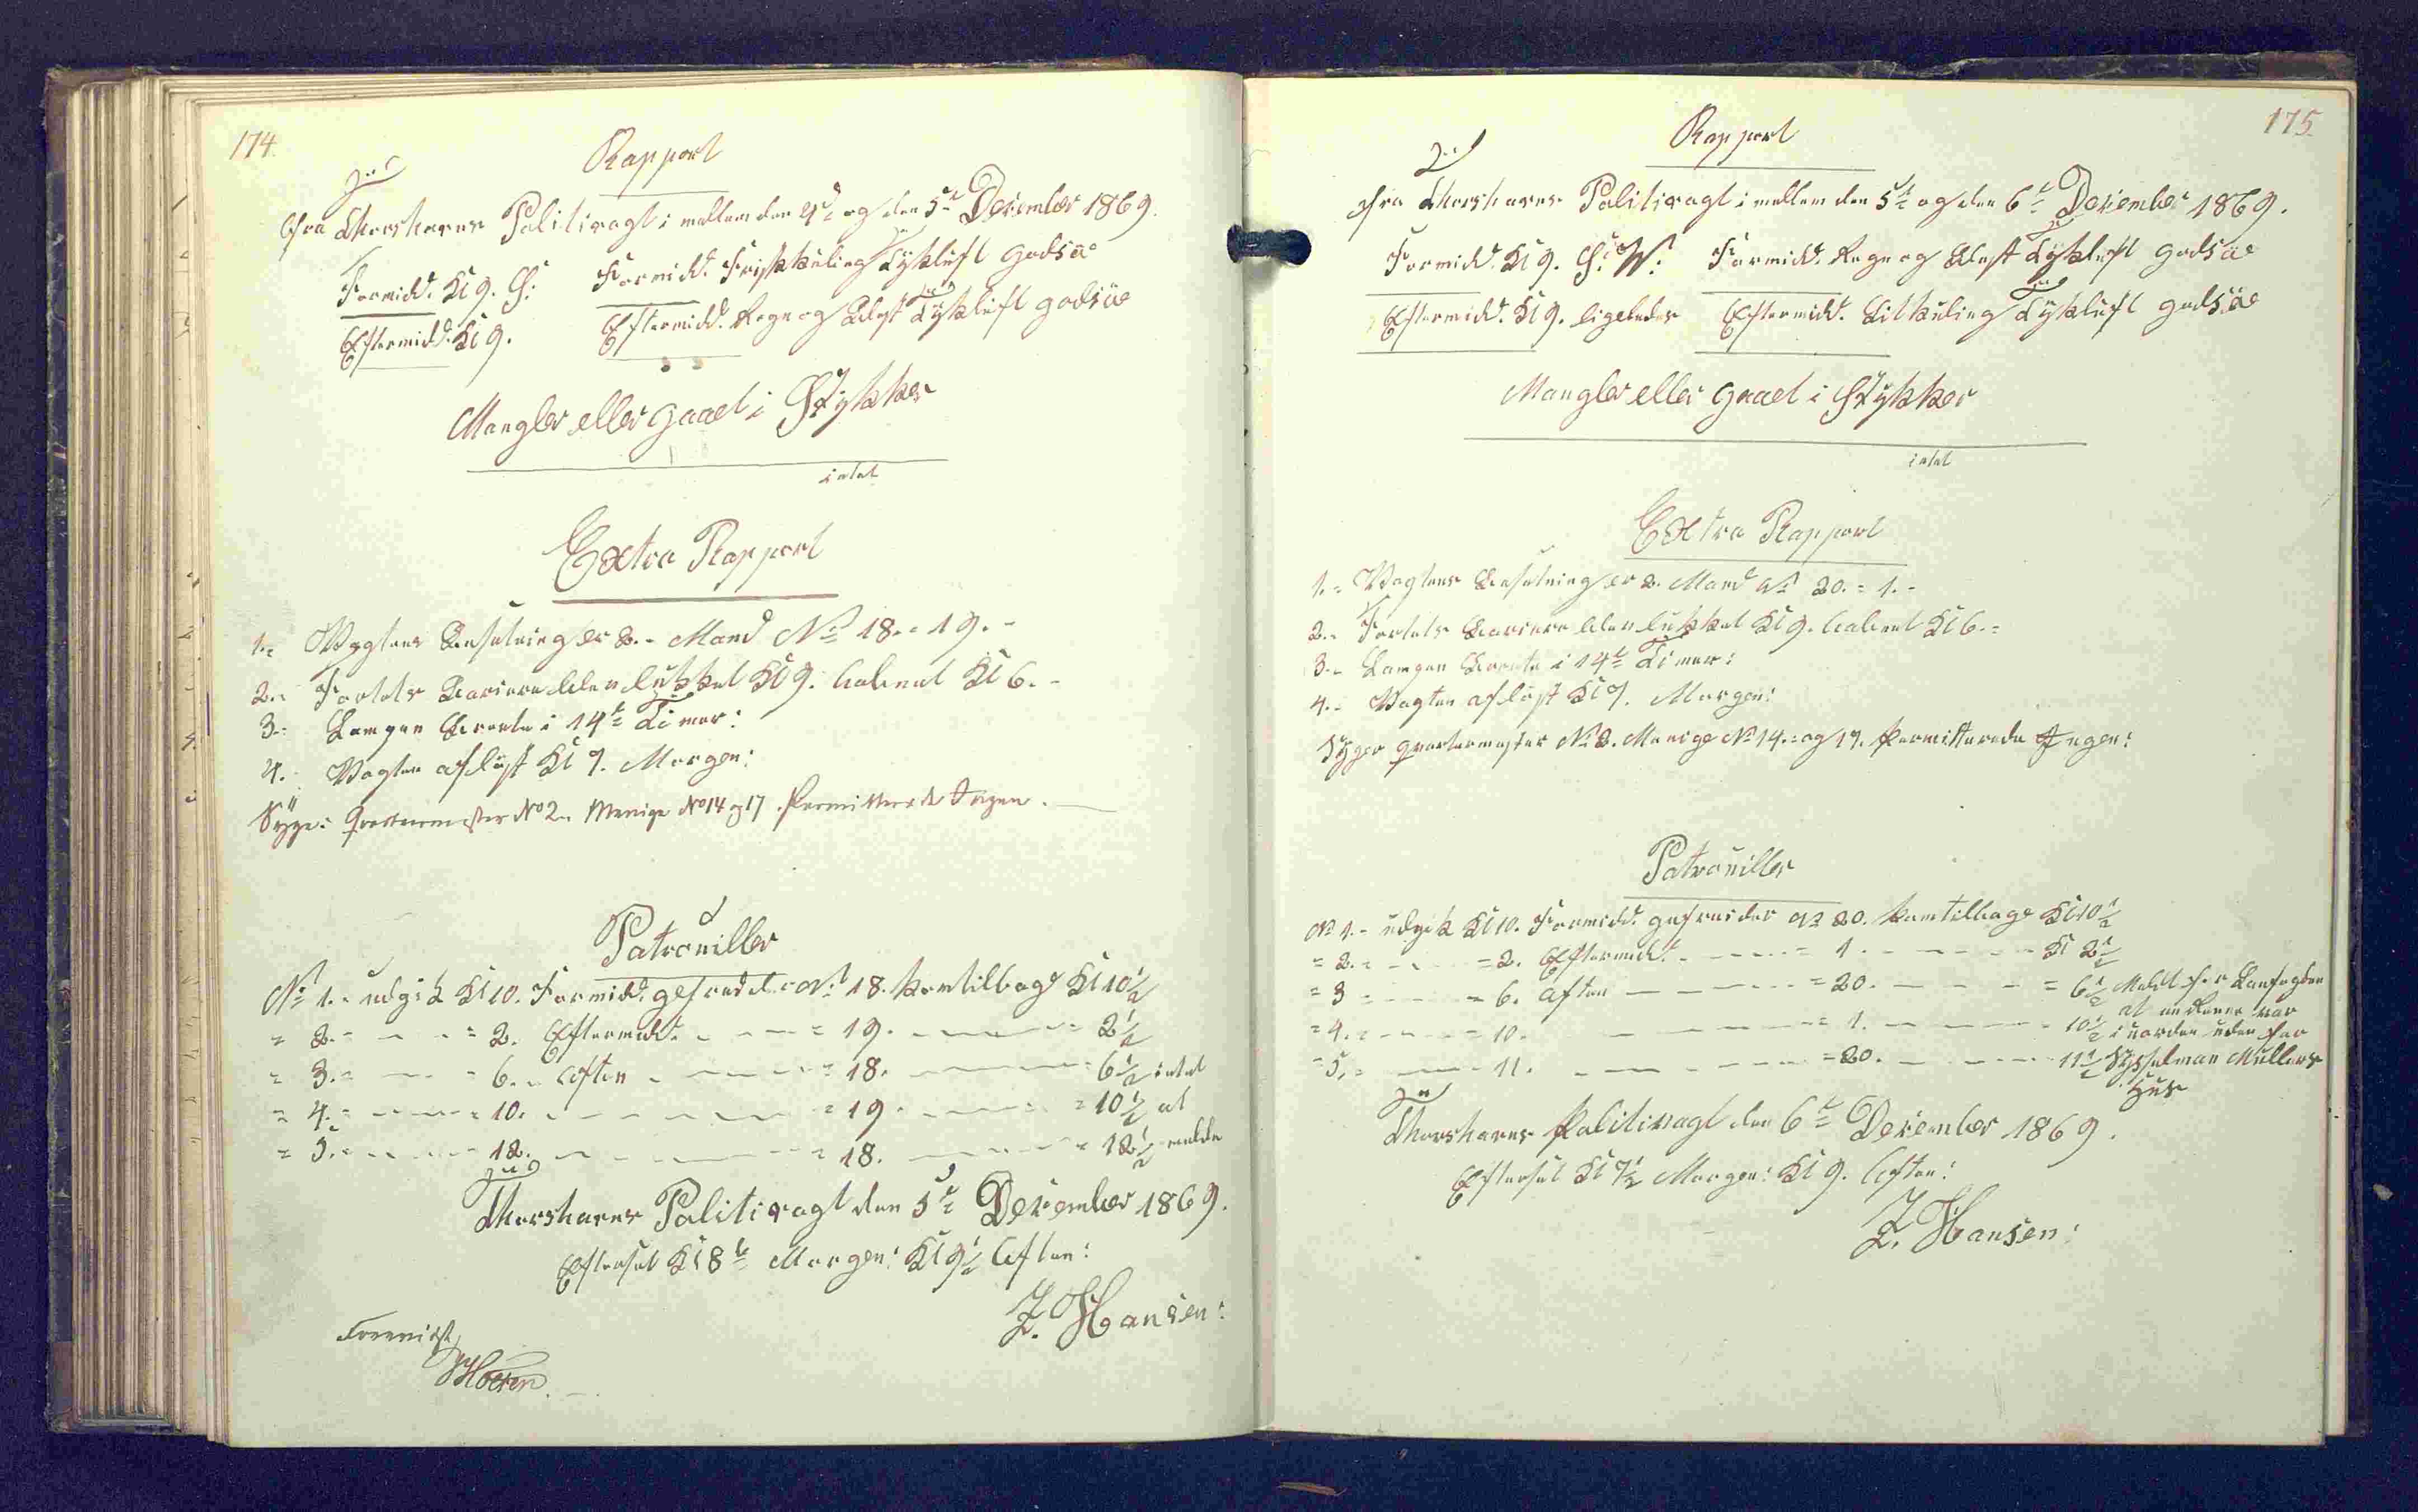 174.
Rapport
fra Thorshavns Politivagt imellem den 4d og den 5te December 1869.
Formidd. Kl 9. S: Formidd. Friskkuling Tykluft godsäe
Eftermidd. Kl 9. Eftermidd. Regn og Blæst Tykluft godsäe
Mangler eller gaaet i Stykker
intet
Extra Rapport
1. Vagtens Besætning er 2. Mand No 18. = 19.
2. Fortets Bariere blev lukket Kl 9. aabnet Kl 6.
3. Lampen Brente i 14t Timer:
4. Vagten afløst Kl 9. Morgen:
Syge: Qvartermester No 2. Menige No 14 og 17. Permitterede Ingen.
Patrouiller
No 1. udgik Kl 10. Formidd. gefreider No 18. kom tilbage Kl 10½
= 2. = 2. Eftermidd. = 19. 2½
= 3. = 6. Aften = 18. 6½ intet
= 4. = 10. = 19. = 10½ at
= 5. 12. = 18. = 12½ melde
Thorshavns Politivagt den 5te December 1869.
Efterset Kl 8t Morgen: Kl 9½ Aften:
Z. Hansen:
Foreviist
175.
Rapport
fra Thorshavns Politivagt imellem den 5te og den 6te December 1869.
Formidd. Kl 9. S: W: Formidd. Regn og Blæst Tykluft godsäe
Eftermidd. Kl 9. ligeledes Eftermidd. Litkuling Tykluft godsäe
Mangler eller gaaet i Stykker
intet
Extra Rapport
1. Vagtens Besætning er 2. Mand No 20. = 1.
2. Fortets Bariere blev lukket Kl 9. aabnet Kl 6.
3. Lampen Brente i 14t Timer:
4. Vagten afløst Kl 9. Morgen:
Syger Qvartermester No 2. Menige No 14. og 17. Permitterede Ingen:
Patrouiller
No 1. udgik Kl 10. Formidd. gefreider No 20. kom tilbage Kl 10½
= 2. = 2. Eftermidd. = 1. Kl 2½
= 3 = 6. Aften = 20. = 6½ Meldt for Lanfogden
= 4. = 10. = 1. 10½ at en Rene var
= 5. = 11. = 20. 11½ i uorden uden for
Sysselman Müllers
Hus
Thorshavns Politivagt den 6te December 1869.
Efterset Kl 7½ Morgen: Kl 9. Aften:
Z. Hansen: